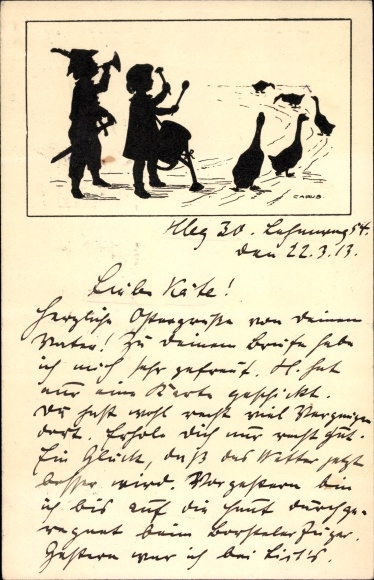 CARUS.
Hbg 30. Lehmweg 54.
den 22.3.13.
Liebe Käte!
Herzliche Ostergrüße von Deinem
Vater! Zu Deinem Briefe habe
ich mich sehr gefreut. H. hat
nur eine Karte geschickt.
Du hast wohl recht viel Vergnügen
dort. Erhole Dich nur recht gut.
Ein Glück, daß das Wetter jetzt
besser wird. Vorgestern bin
ich bis auf die Haut durchge-
regnet beim Borsteler Jäger.
Gestern war ich bei